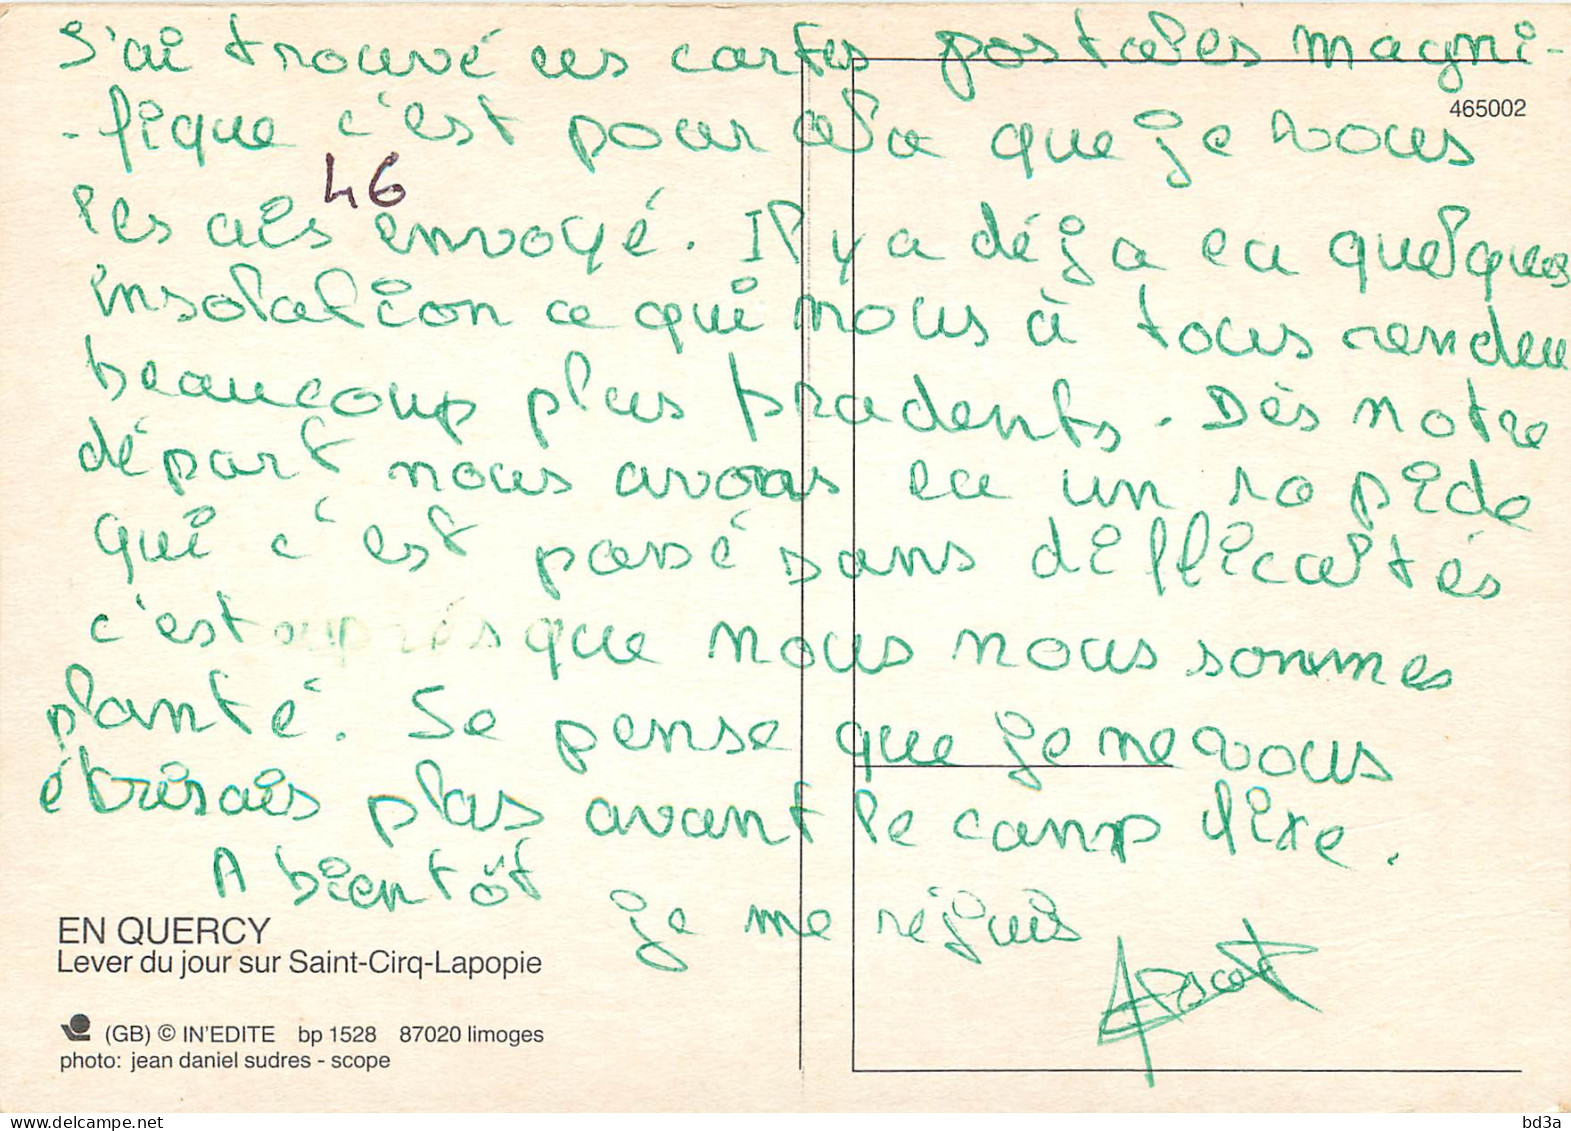 J'ai trouvé ces cartes postales magni-
465002
-fique c'est pour cela que je vous
46
les ais envoyé. Il y a déja eu quelques
insolation ce qui nous à tous rendeu
beaucoup plus prudents. Dès notre
départ nous avons eu un rapide
qui c'est passé sans difficultés
c'est après que nous nous sommes
planté. Je pense que je ne vous
étrisais plus avant le camp fixe.
A bientôt je me réjuis
EN QUERCY
Lever du jour sur Saint-Cirq-Lapopie
(GB) © IN'EDITE bp 1528 87020 limoges
photo: jean daniel sudres - scope
bd3a